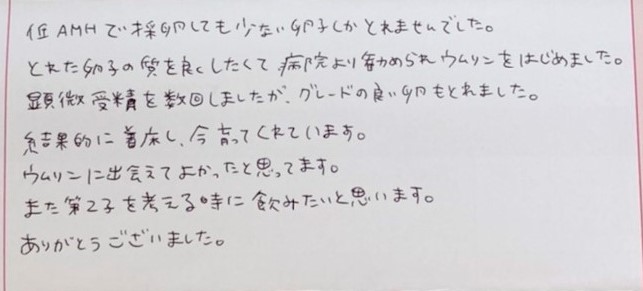 低AMHで採卵しても少ない卵子しかとれませんでした。
とれた卵子の質を良くしたくて病院より勧められウムリンをはじめました。
顕微受精を数回しましたが、グレードの良い卵もとれました。
結果的に着床し、今育ってくれています。
ウムリンに出会えてよかったと思ってます。
また第2子を考える時に飲みたいと思います。
ありがとうございました。